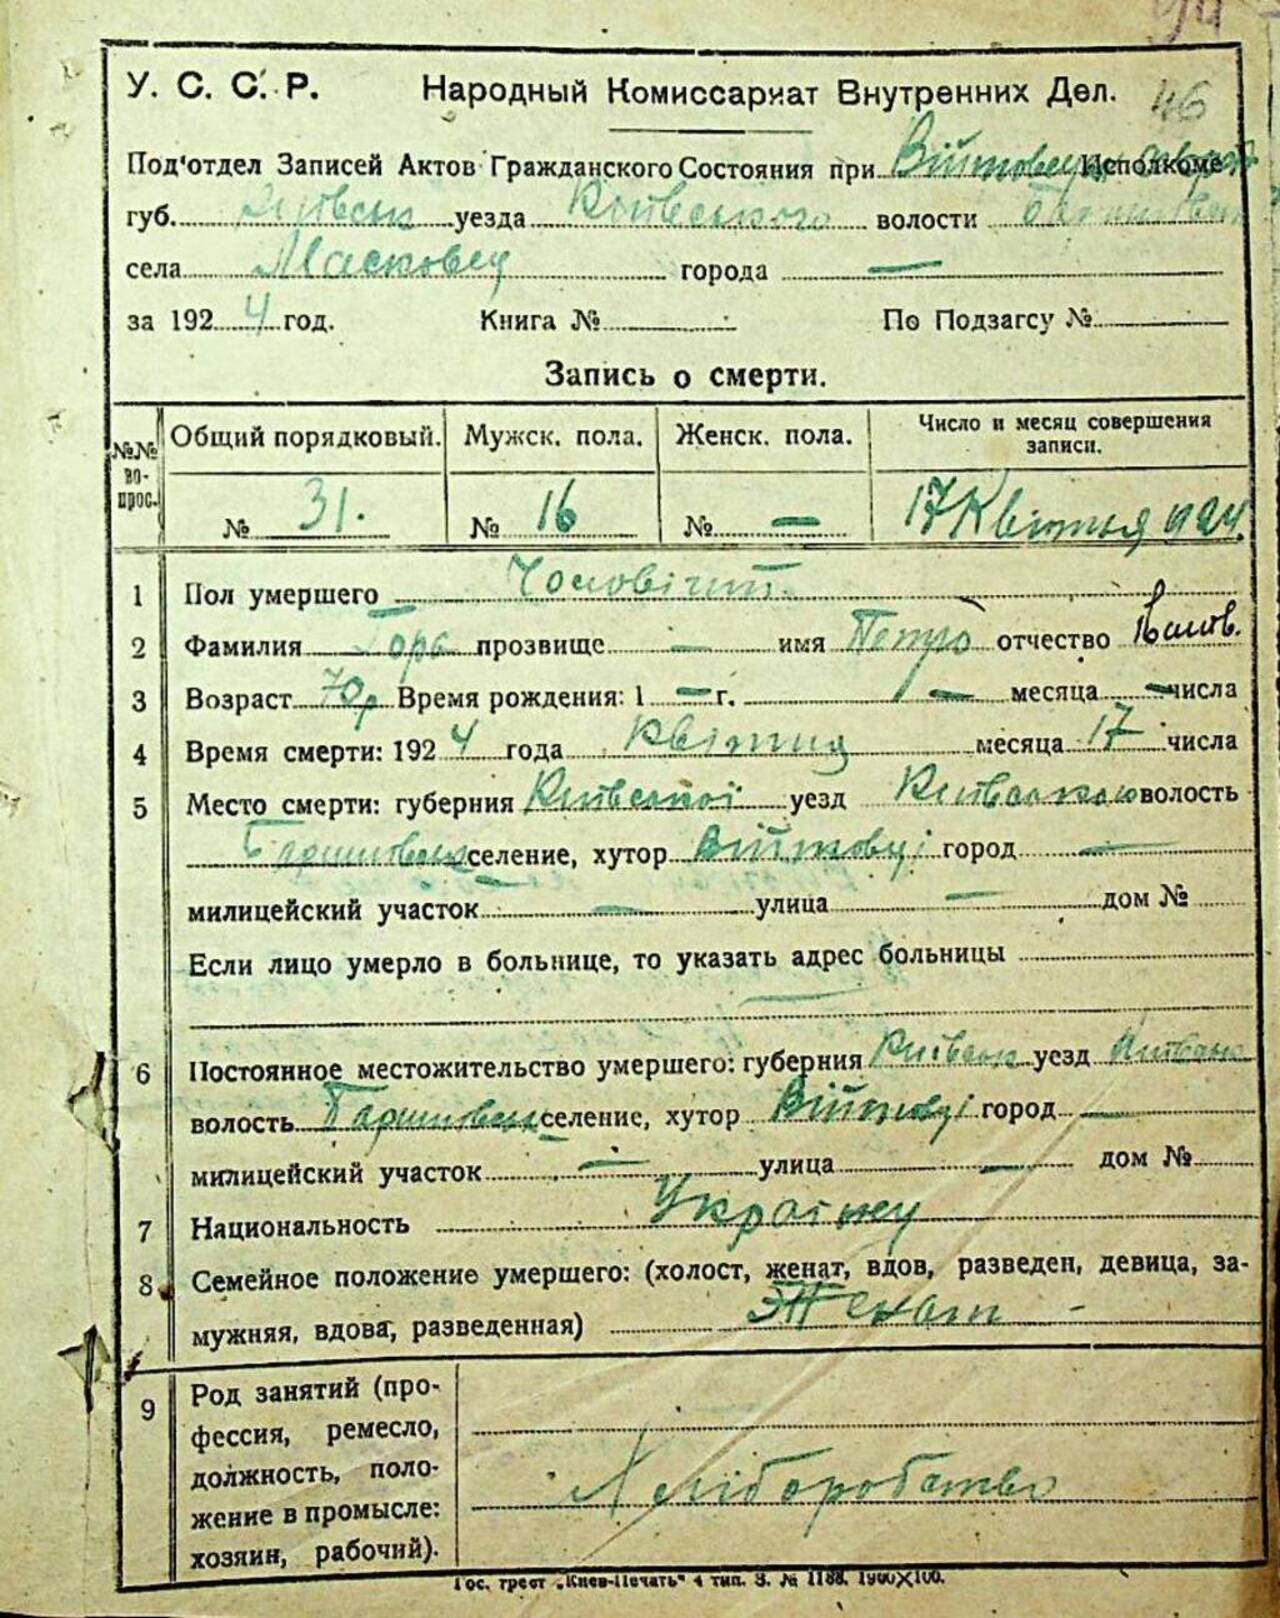 46
У. С. С. Р. Народный Комиссариат Внутренних Дел.
Под'отдел Записей Актов Гражданского Состояния при Исполкоме
губ. Київськ уезда Київського волости
села Масковец города —
за 1924 год. Книга № По Подзагсу №
Запись о смерти.
№№ вопрос. Общий порядковый. Мужск. пола. Женск. пола. Число и месяц совершения записи.
№ 31. № 16 № — 17 Квітня 1924.
1 Пол умершего Чоловічий
2 Фамилия Гора прозвище — имя Петро отчество
3 Возраст 70 р Время рождения: 1 — г. — месяца — числа
4 Время смерти: 1924 года Квітня месяца 17 числа
5 Место смерти: губерния Київської уезд Київського волость
Баришевськ селение, хутор Війтовці город —
милицейский участок — улица — дом №
Если лицо умерло в больнице, то указать адрес больницы
6 Постоянное местожительство умершего: губерния Київськ уезд Київськ
волость Баришевськ селение, хутор Війтовці город —
милицейский участок — улица — дом №
7 Национальность Українец
8 Семейное положение умершего: (холост, женат, вдов, разведен, девица, за-
мужняя, вдова, разведенная) Женат -
9 Род занятий (про-
фессия, ремесло,
должность, поло-
жение в промысле:
хозяин, рабочий).
Хліборобство
Гос. трест „Киев-Печать" 4 тип. З. № 1188. 1900X100.